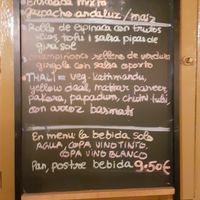 Ensalada mixta
gazpacho andaluz/maiz
Rollo de espinaca con trufos
tofu i salsa pipas de
girasol
Champiñones relleno de verdura
girgola con salsa oporto
THALI = veg-kathmandu,
yellow daal, mattar paneer,
pakora, papadum, chutni-tulsi
con arroz basmati
En menu la bebida solo
AGUA, COPA VINO TINTO,
COPA VINO BLANCO
Pan, postre bebida 9.50€